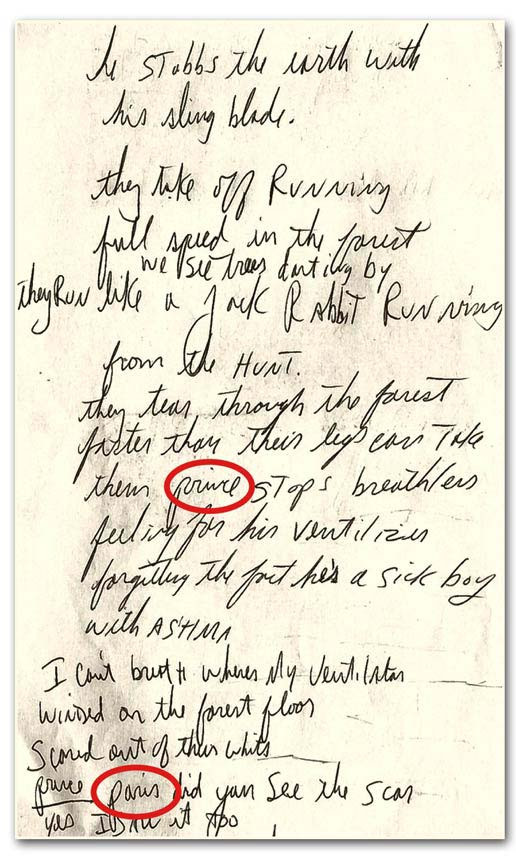 he stabbs the earth with
his sling blade.
they take off Running
full speed in the forest
we see trees darting by
they Run like a Jack Rabbit Running
from the HUNT.
they tear through the forest
faster than their legs can Take
them prince STOPS breathless
feeling for his ventilizer
forgetting the fact he's a sick boy
with ASTHMA
I can't breath wheres My Ventilator
winded on the forest floor
Scared out of their whits
prince paris did you See the Scar
yes I SAW it too